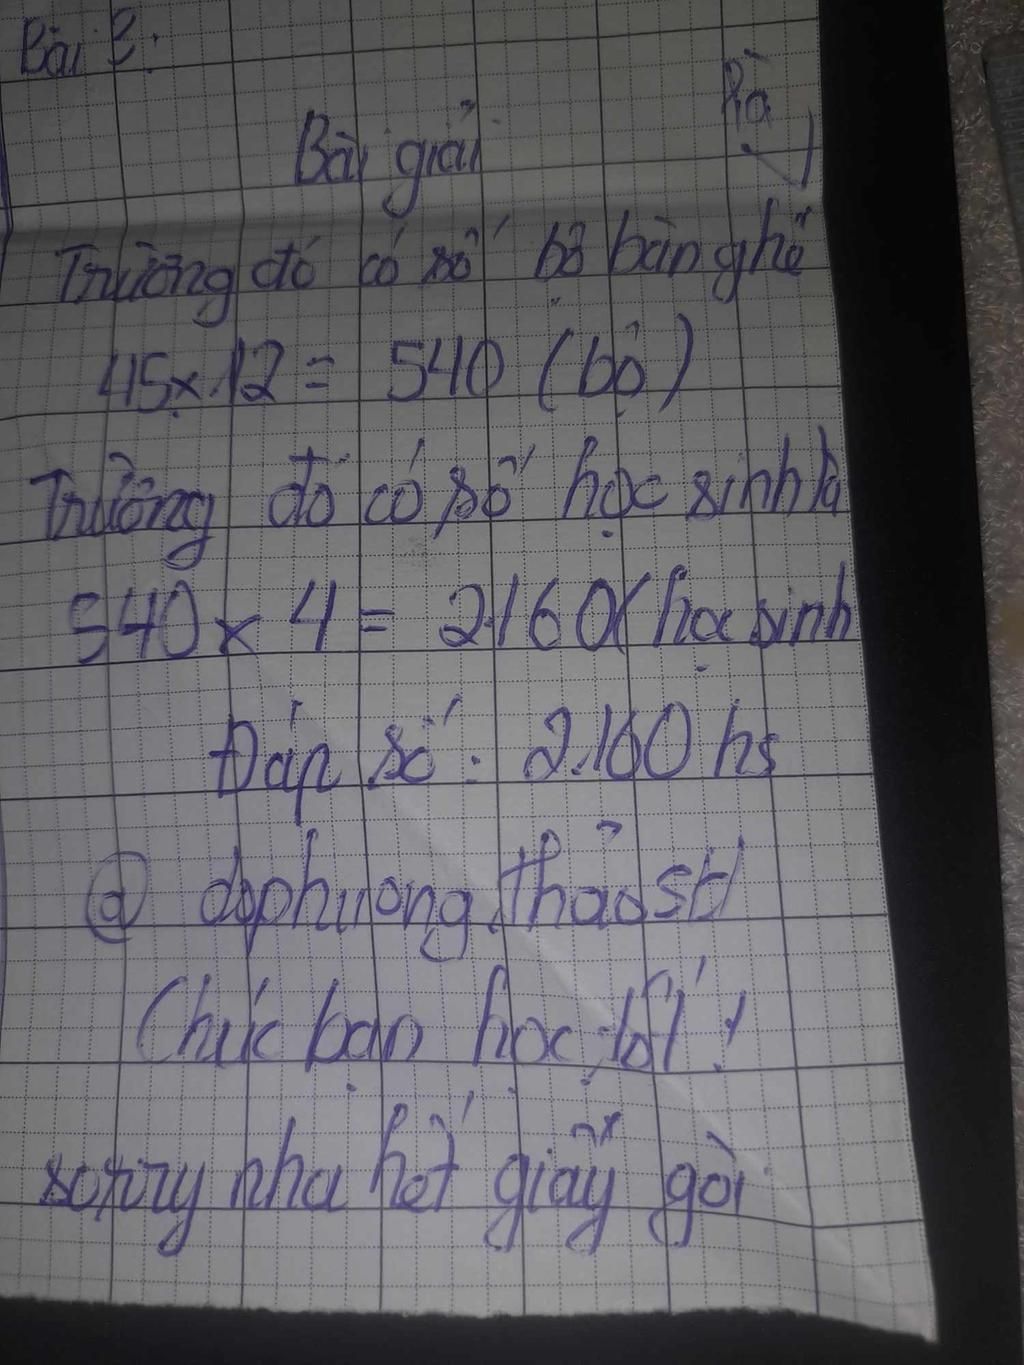 Bài 3:
Bài giải
là
Trường đó có số bộ bàn ghế
45 x 12 = 540 (bộ)
Trường đó có số học sinh là
540 x 4 = 2160 (học sinh
Đáp số: 2.160 hs
@ dophuong.thảo
Chúc bạn học tốt!
sorry nha hết giấy gòi